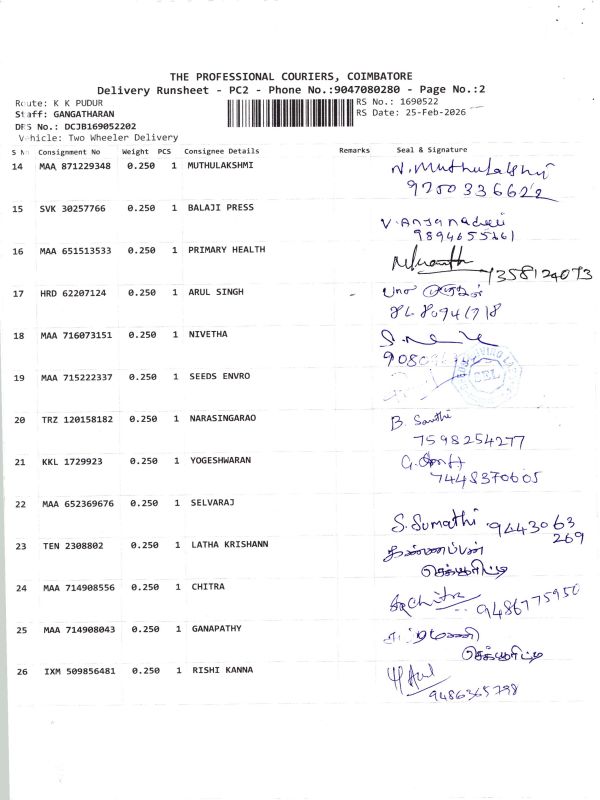 THE PROFESSIONAL COURIERS, COIMBATORE
Delivery Runsheet - PC2 - Phone No.:9047080280 - Page No.:2
Route: K K PUDUR
RS No.: 1690522
Staff: GANGATHARAN
RS Date: 25-Feb-2026
DRS No.: DCJB169052202
Vehicle: Two Wheeler Delivery
S No Consignment No Weight PCS Consignee Details Remarks Seal & Signature
14 MAA 871229348 0.250 1 MUTHULAKSHMI N. Muthulakshmi
15 SVK 30257766 0.250 1 BALAJI PRESS
16 MAA 651513533 0.250 1 PRIMARY HEALTH
7358124073
17 HRD 62207124 0.250 1 ARUL SINGH
18 MAA 716073151 0.250 1 NIVETHA
19 MAA 715222337 0.250 1 SEEDS ENVRO
CEL
20 TRZ 120158182 0.250 1 NARASINGARAO B. Santhi
7598254277
21 KKL 1729923 0.250 1 YOGESHWARAN
7448370605
22 MAA 652369676 0.250 1 SELVARAJ
S. Sumathi 9443063
269
23 TEN 2308802 0.250 1 LATHA KRISHANN கண்ணப்பன்
செக்யூரிட்டி
24 MAA 714908556 0.250 1 CHITRA Chitra
9486775950
25 MAA 714908043 0.250 1 GANAPATHY
செக்யூரிட்டி
26 IXM 509856481 0.250 1 RISHI KANNA
9486365798